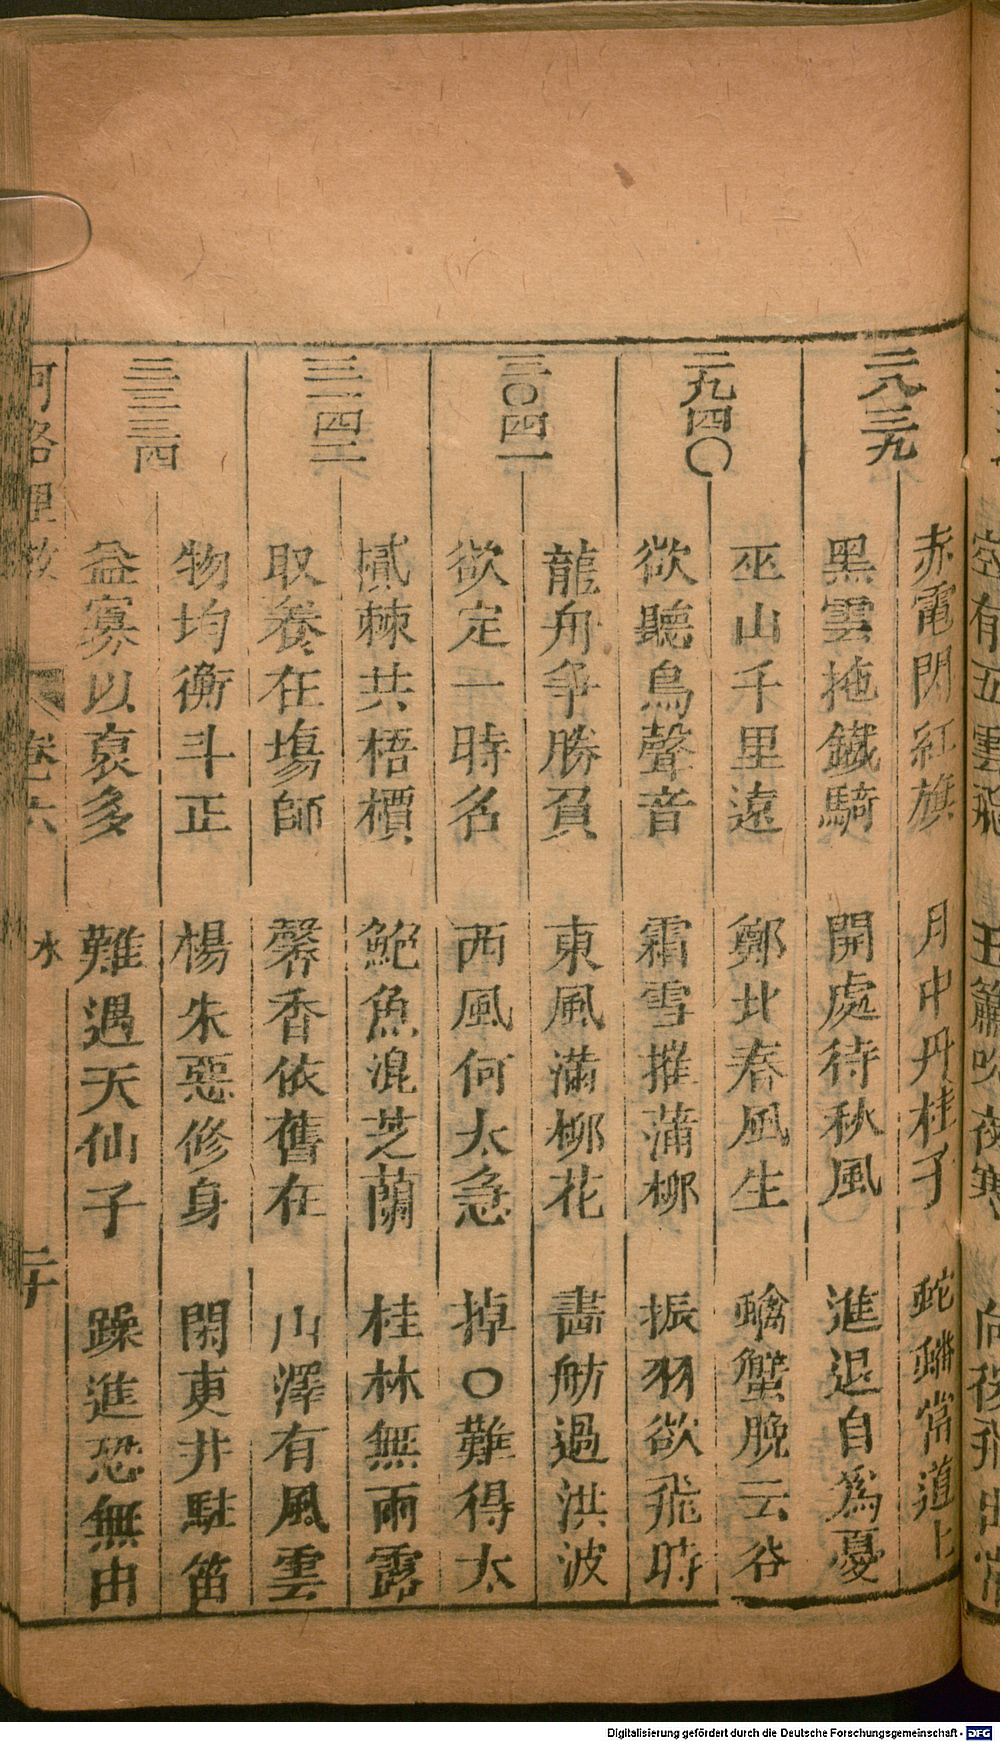 二八三九
赤電閃紅旗 月中丹桂子 蛇 常道上
黑雲拖鐵騎 開處待秋風 進退自為憂
二九四〇
巫山千里遠 鄭北春風生 螃蟹晚云谷
欲聽鳥聲音 霜雪摧蒲柳 振羽欲飛時
三〇四一
龍舟爭勝負 東風滿柳花 畵舫過洪波
欲定一時名 西風何太急 掉〇難得太
三一四二
樲棘共梧檟 鮑魚混芝蘭 桂林無雨露
取養在塲師 馨香依舊在 山澤有風雲
三三三四
物均衡斗正 楊朱惡修身 閑東井駐笛
益寡以裒多 難遇天仙子 躁進恐無由
河洛理數 卷六 水 二十
Digitalisierung gefördert durch die Deutsche Forschungsgemeinschaft - DFG